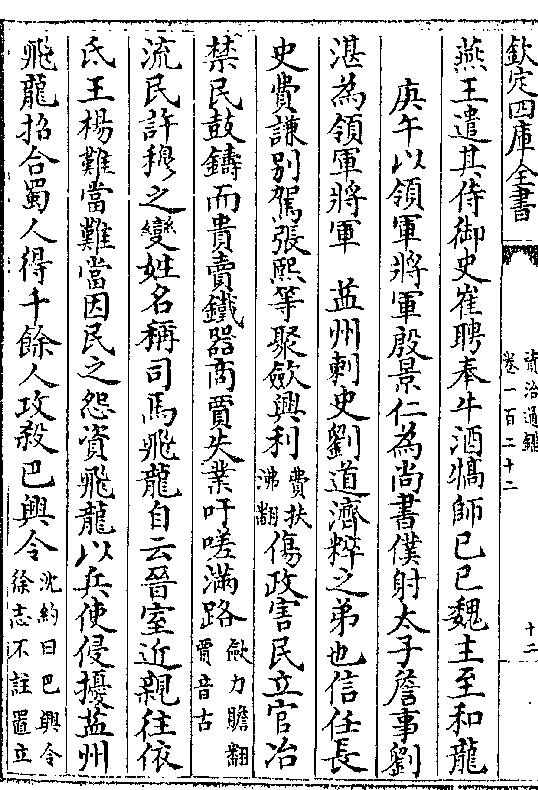 欽定四庫全書
資治通鑑
卷一百二十二
十二
燕王遣其侍御史崔聘奉牛酒犒師己巳魏主至和龍
庚午以領軍將軍殷景仁為尚書僕射太子詹事劉
湛為領軍將軍　益州刺史劉道濟粹之弟也信任長
史費謙别駕張熙等聚歛興利費扶沸翻傷政害民立官冶
禁民鼓鑄而貴賣鐵器商賈失業吁嗟滿路歛力贍翻賈音古
流民許穆之變姓名稱司馬飛龍自云晉室近親往依
氐王楊難當難當因民之怨資飛龍以兵使侵擾益州
飛龍招合蜀人得千餘人攻殺巴興令沈約曰巴興令徐志不註置立